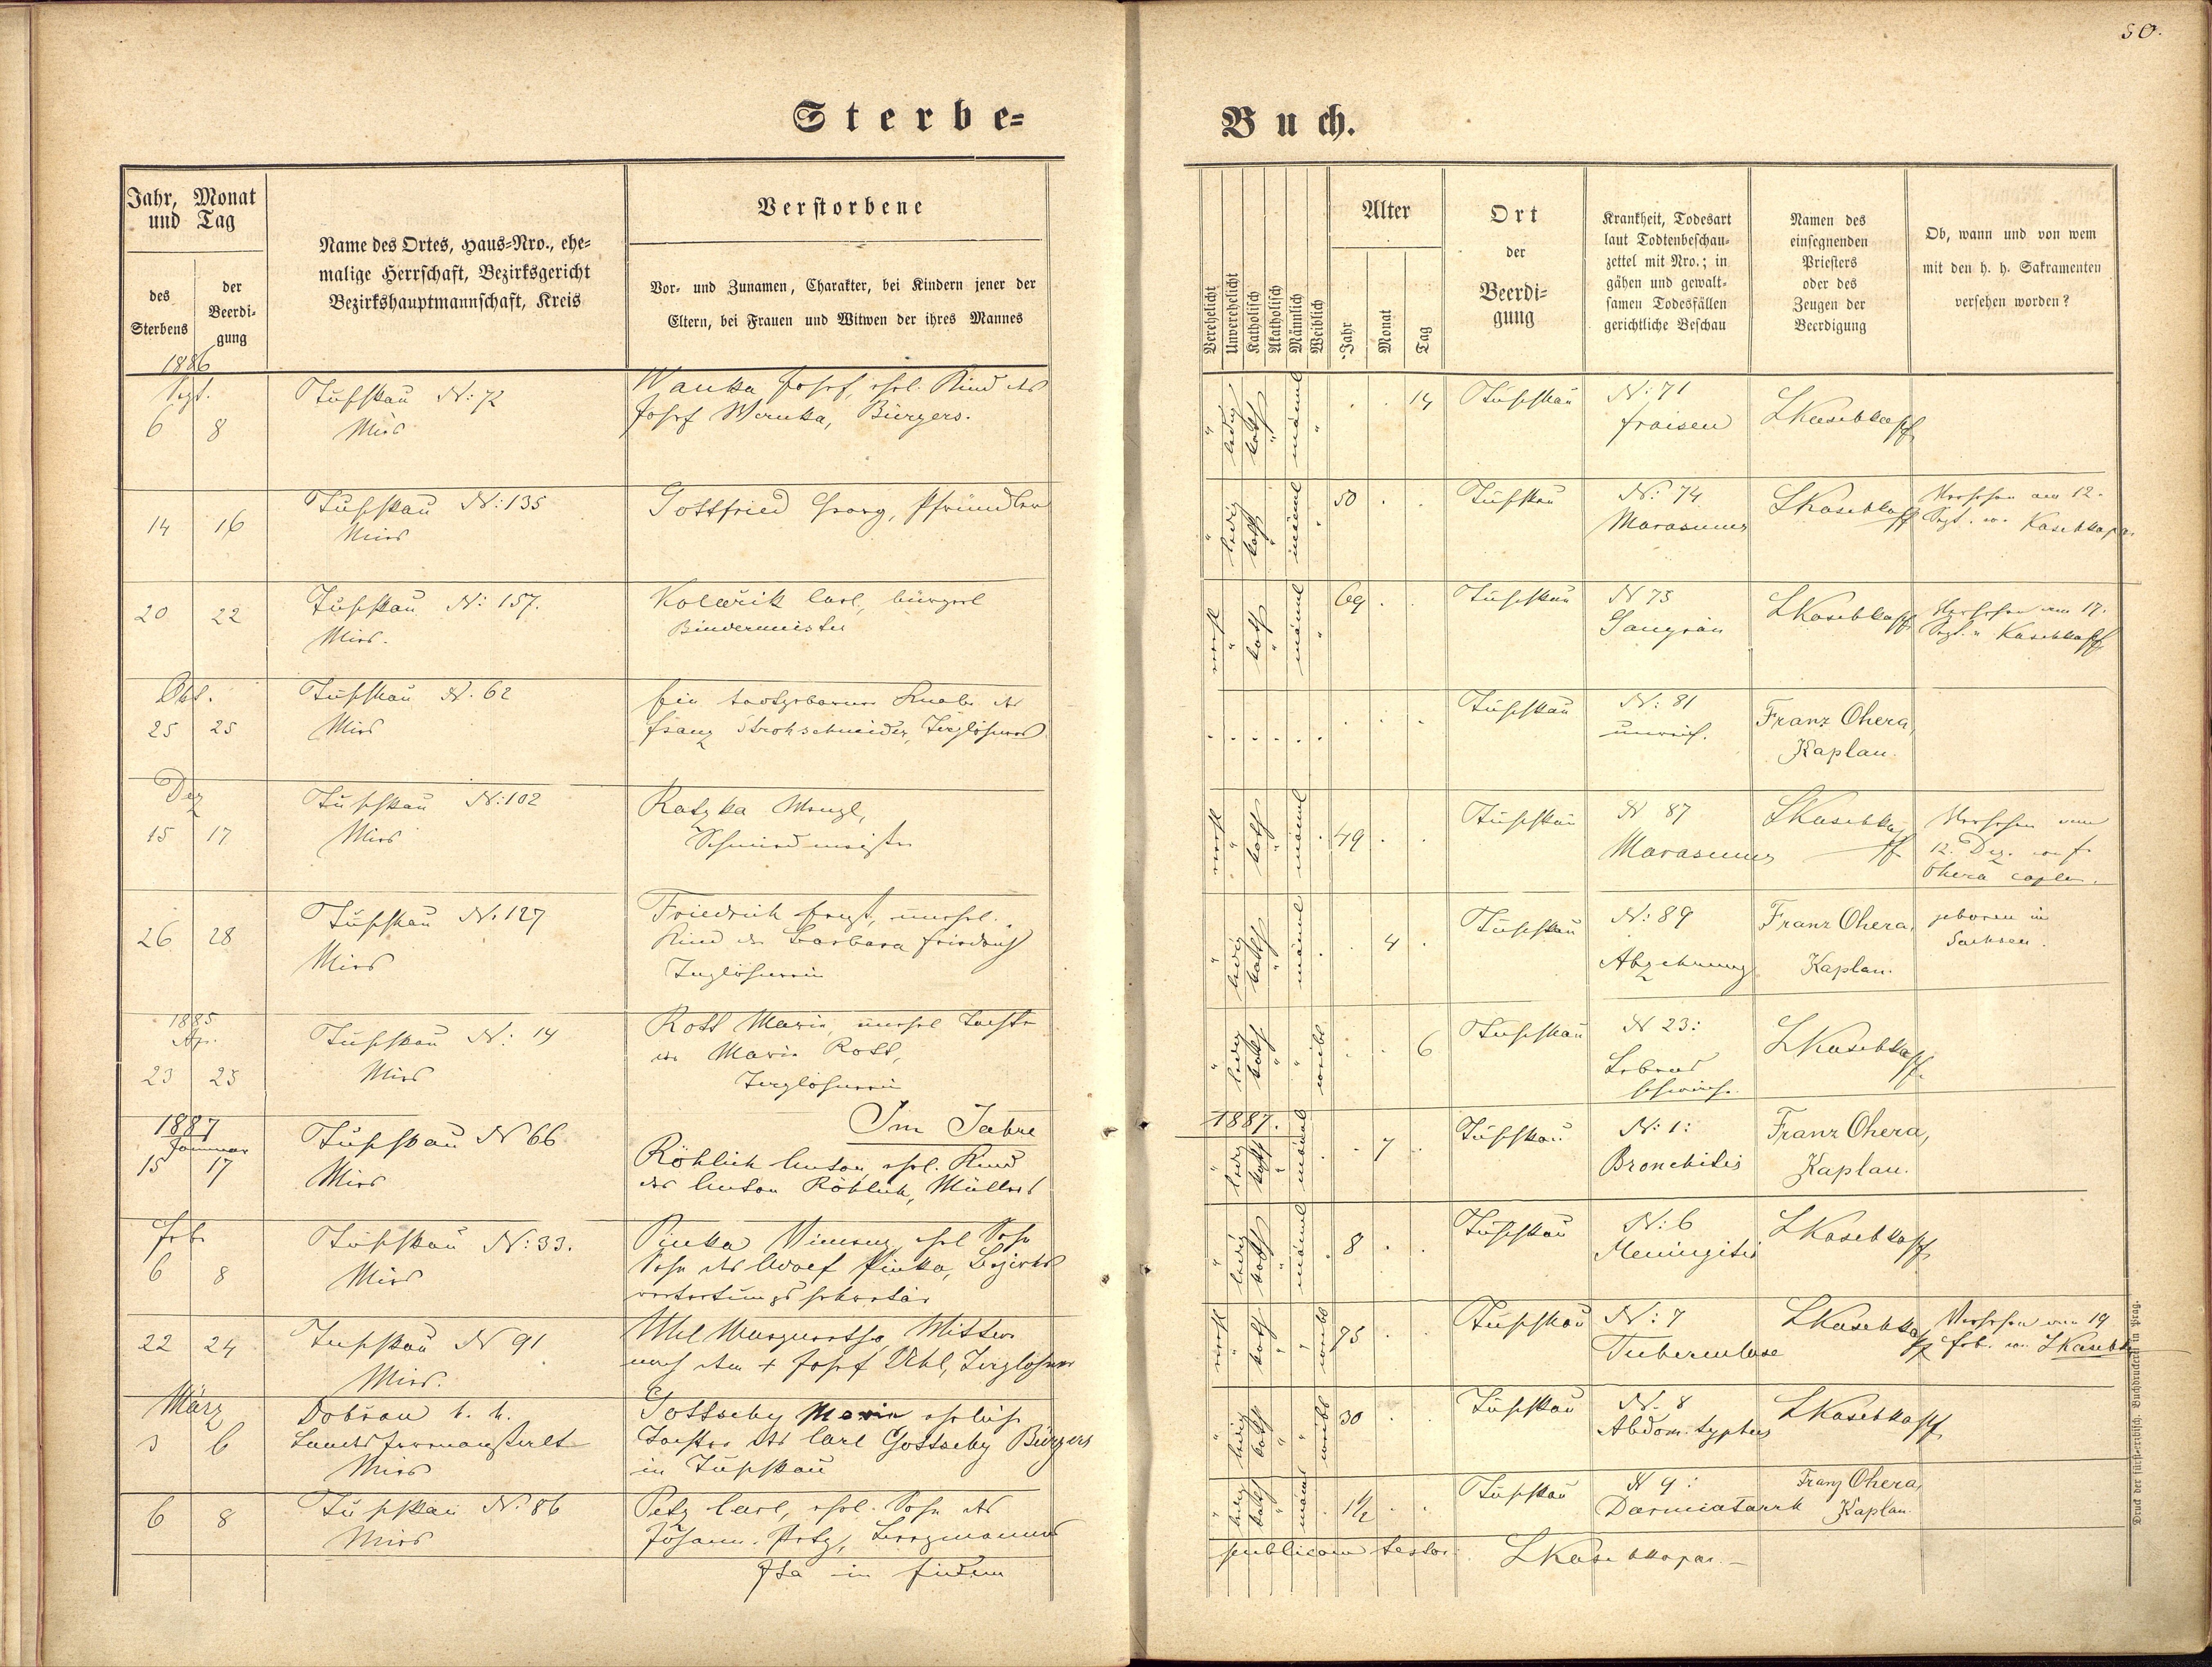 50.
Sterbe-
Buch.
Jahr, Monat
und Tag
des
Sterbens
der
Beerdi-
gung
Name des Ortes, Haus-Nro., ehe-
malige Herrschaft, Bezirksgericht
Bezirkshauptmannschaft, Kreis
Verstorbene
Vor- und Zunamen, Charakter, bei Kindern jener der
Eltern, bei Frauen und Witwen der ihres Mannes
Verehelicht
Unverehelicht
Katholisch
Akatholisch
Männlich
Weiblich
Alter
Jahr
Monat
Tag
Ort
der
Beerdi-
gung
Krankheit, Todesart
laut Todtenbeschau-
zettel mit Nro.; in
gähen und gewalt-
samen Todesfällen
gerichtliche Beschau
Namen des
einsegnenden
Priesters
oder des
Zeugen der
Beerdigung
Ob, wann und von wem
mit den h. h. Sakramenten
versehen worden?
1886
Sept.
6 8
Tuschkau N: 72
Mies
Wanka Josef, ehel. Kind des
Josef Wanka, Bürgers.
" ledig kath " männl "
14
Tuschkau
N: 71
Fraisen
14 16
Tuschkau N: 135
Mies
Gottfried Georg, Pfründler
" ledig kath " männl "
50
Tuschkau
N: 74
Marasmus
Versehen am 12.
Sept. v.
20 22
Tuschkau N: 157.
Mies.
Kolařik Carl, bürgerl
Bindermeister
verehl " kath " männl "
69
Tuschkau
N 75
Gangrän
Versehen am 17.
Sept. v
Okt.
25 25
Tuschkau N. 62
Mies
Ein todtgeborener Knabe des
Franz Strohschneider, Taglöhners
Tuschkau
N: 81
unreif.
Franz Ohera,
Kaplan.
Dez
15 17
Tuschkau N: 102
Mies
Katzka Wenzl,
Schmiedmeister
verehl " kath " männl
49
Tuschkau
N 87
Marasmus
Versehen am
12. Dez. von F.
Ohera caplan.
26 28
Tuschkau N. 127
Mies
Friedrich Ernst, unehel.
Kind der Barbara Friedrich
Taglöhnerin
" ledig kath " männl
4
Tuschkau
N: 89
Abzehrung
Franz Ohera,
Kaplan.
geboren in
Sachsen.
1885
Apr.
23 25
Tuschkau N: 14
Mies
Rott Marie, unehel Tochter
der Marie Rott,
Taglöhnerin
" ledig kath " weibl
6
Tuschkau
N 23:
Lebens
schwäche
Im Jahre
1887.
1887
Januar
15 17
Tuschkau N 66
Mies
Röhlich Anton, ehel. Kind
des Anton Röhlich, Müllers
" ledig kath " männl
7
Tuschkau
N: 1:
Bronchitis
Franz Ohera,
Kaplan.
Feb.
6 8
Tuschkau N: 33.
Mies
Pinka Vincenz, ehel Sohn
Sohn des Adolf Pinka, Bezirks
vertretungssekretär
" ledig kath " männl
8
Tuschkau
N: 6
Meningitis
22 24
Tuschkau N 91
Mies.
Uhl Margarethe, Witwe
nach dem + Josef Uhl, Taglöhner
verehl " kath " " weibl
75
Tuschkau
N: 7
Tuberculose
Versehen am 19
Feb. von
März
3 6
Dobřan k. k.
Landesirrenanstalt
Mies
Gottscby Marie eheliche
Tochter des Carl Gottscby Bürgers
in Tuschkau
" ledig kath " " weibl
30
Tuschkau
N. 8
Abdom. typhus
6 8
Tuschkau N. 86
Mies
Petz Carl, ehel. Sohn des
Johann Petz, Bergmannes
" ledig kath " männl
1½
Tuschkau
N 9:
Darmkatarrh
Franz Ohera,
Kaplan.
Ita in fidem
publicam testor
Druck der fürst-erzbisch. Buchdruckerei in Prag.